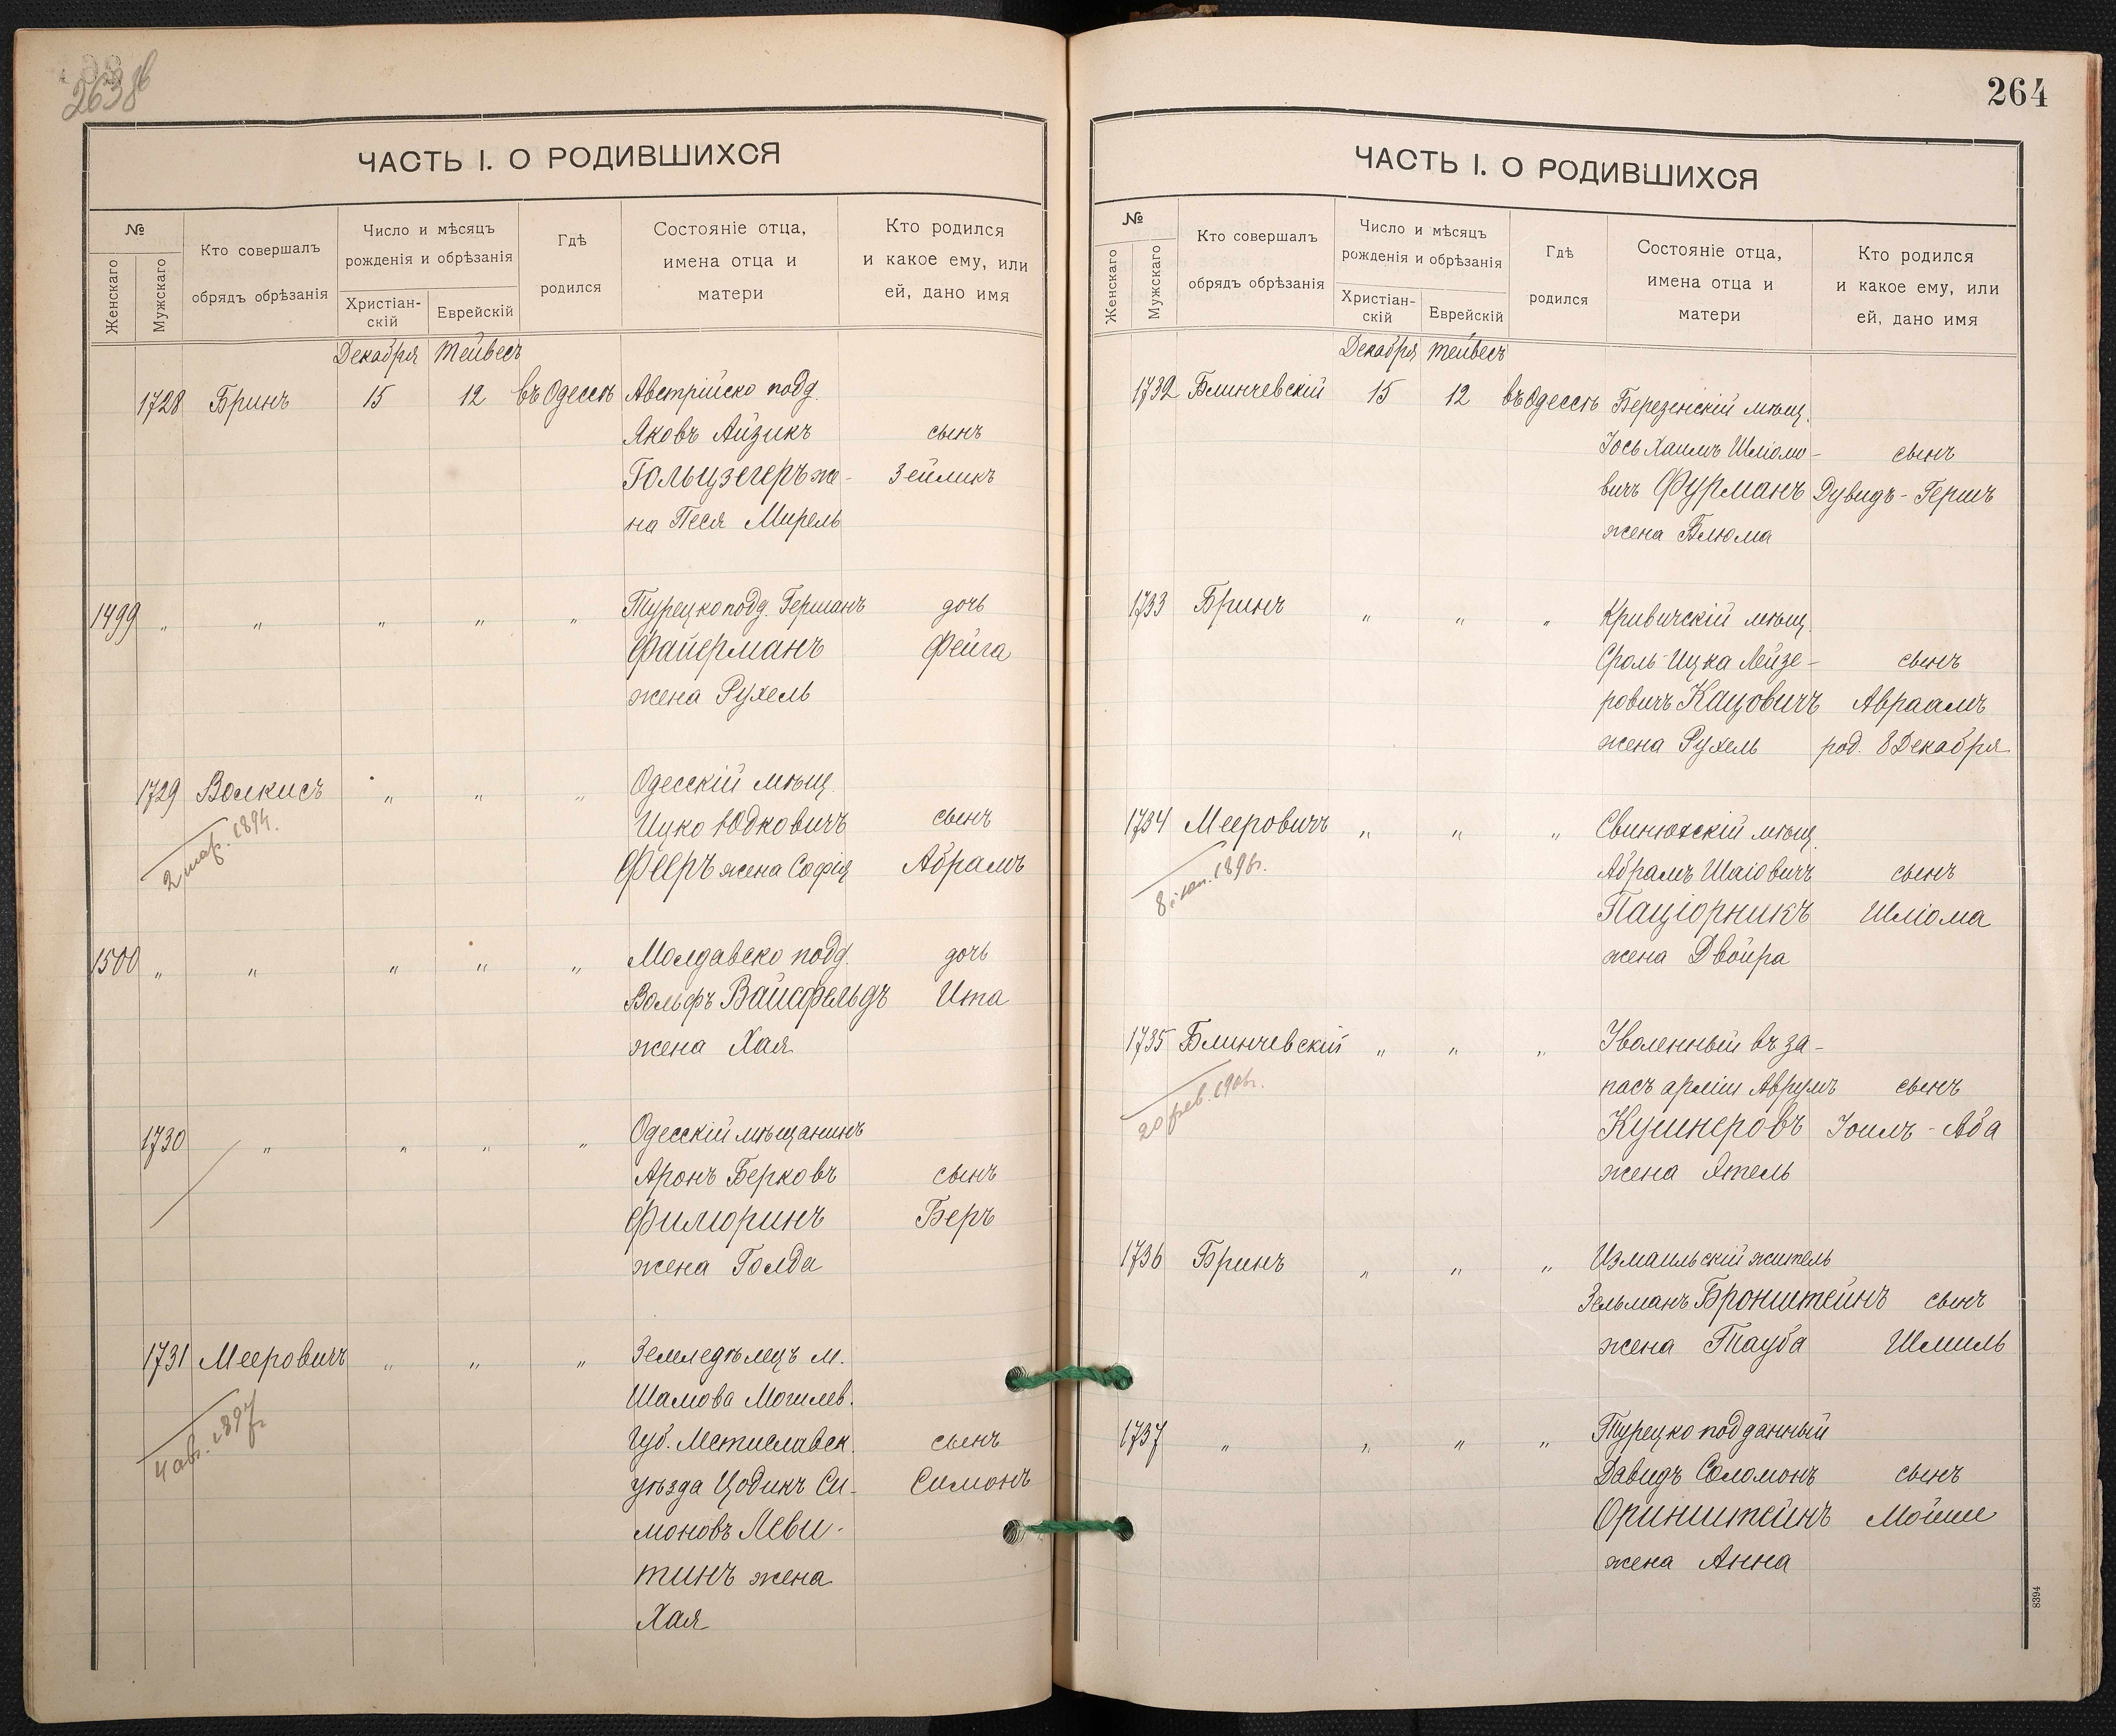 263 об
ЧАСТЬ I. О РОДИВШИХСЯ
№
Женскаго
Мужскаго
Кто совершалъ
обрядъ обрѣзанія
Число и мѣсяцъ
рожденія и обрѣзанія
Христіан-
скій
Еврейскій
Гдѣ
родился
Состояніе отца,
имена отца и
матери
Кто родился
и какое ему, или
ей, дано имя
Декабря Тейвесъ
1728 Бринъ 15 12 въ Одессѣ Австрійско подд.
Яковъ Айзикъ сынъ
Гольцзегеръ же- Зейликъ
на Песя Мирель
1499 „ „ „ „ „ Турецко подд. Германъ дочь
Файерманъ Фейга
жена Рухель
1729 Волкисъ „ „ „ Одесскій мѣщ.
2 мар. 1894.
Ицко Юдковичъ сынъ
Фееръ жена Софія Абрамъ
1500 „ „ „ „ „ Молдавско подд. дочь
Вольфъ Вайсфельдъ Ита
жена Хая
1730 „ „ „ „ Одесскій мѣщанинъ
Аронъ Берковъ сынъ
Филюринъ Беръ
жена Голда
1731 Мееровичъ „ „ „ Земледѣлецъ м.
4 авг. 1897 г
Шамова Могилев.
Губ. Мстиславск. сынъ
уѣзда Цодикъ Си- Симонъ
моновъ Леви-
тинъ жена
Хая
264
ЧАСТЬ I. О РОДИВШИХСЯ
№
Женскаго
Мужскаго
Кто совершалъ
обрядъ обрѣзанія
Число и мѣсяцъ
рожденія и обрѣзанія
Христіан-
скій
Еврейскій
Гдѣ
родился
Состояніе отца,
имена отца и
матери
Кто родился
и какое ему, или
ей, дано имя
Декабря Тейвесъ
1732 Блинчевскій 15 12 въ Одессѣ Березенскій мѣщ.
Іось Хаимъ Шліомо- сынъ
вичъ Фурманъ Дувидъ-Гершъ
жена Блюма
1733 Бринъ „ „ „ Кривичскій мѣщ.
Сроль-Ицка Лейзе- сынъ
ровичъ Кацовичъ Авраамъ
жена Рухель род. 8 Декабря
1734 Мееровичъ „ „ „ Свинюхскій мѣщ.
Абрамъ Шаіовичъ сынъ
Паціорникъ Шліома
жена Двойра
1735 Блинчевскій „ „ „ Уволенный въ за-
пасъ арміи Аврумъ сынъ
Кушнеровъ Іоилъ-Аба
жена Ятель
1736 Бринъ „ „ „ Измаильскій житель
Зельманъ Бронштейнъ сынъ
жена Тауба Шмиль
1737 „ „ „ „ Турецко подданный
Давидъ Соломонъ сынъ
Оринштейнъ Мойше
жена Анна
8394